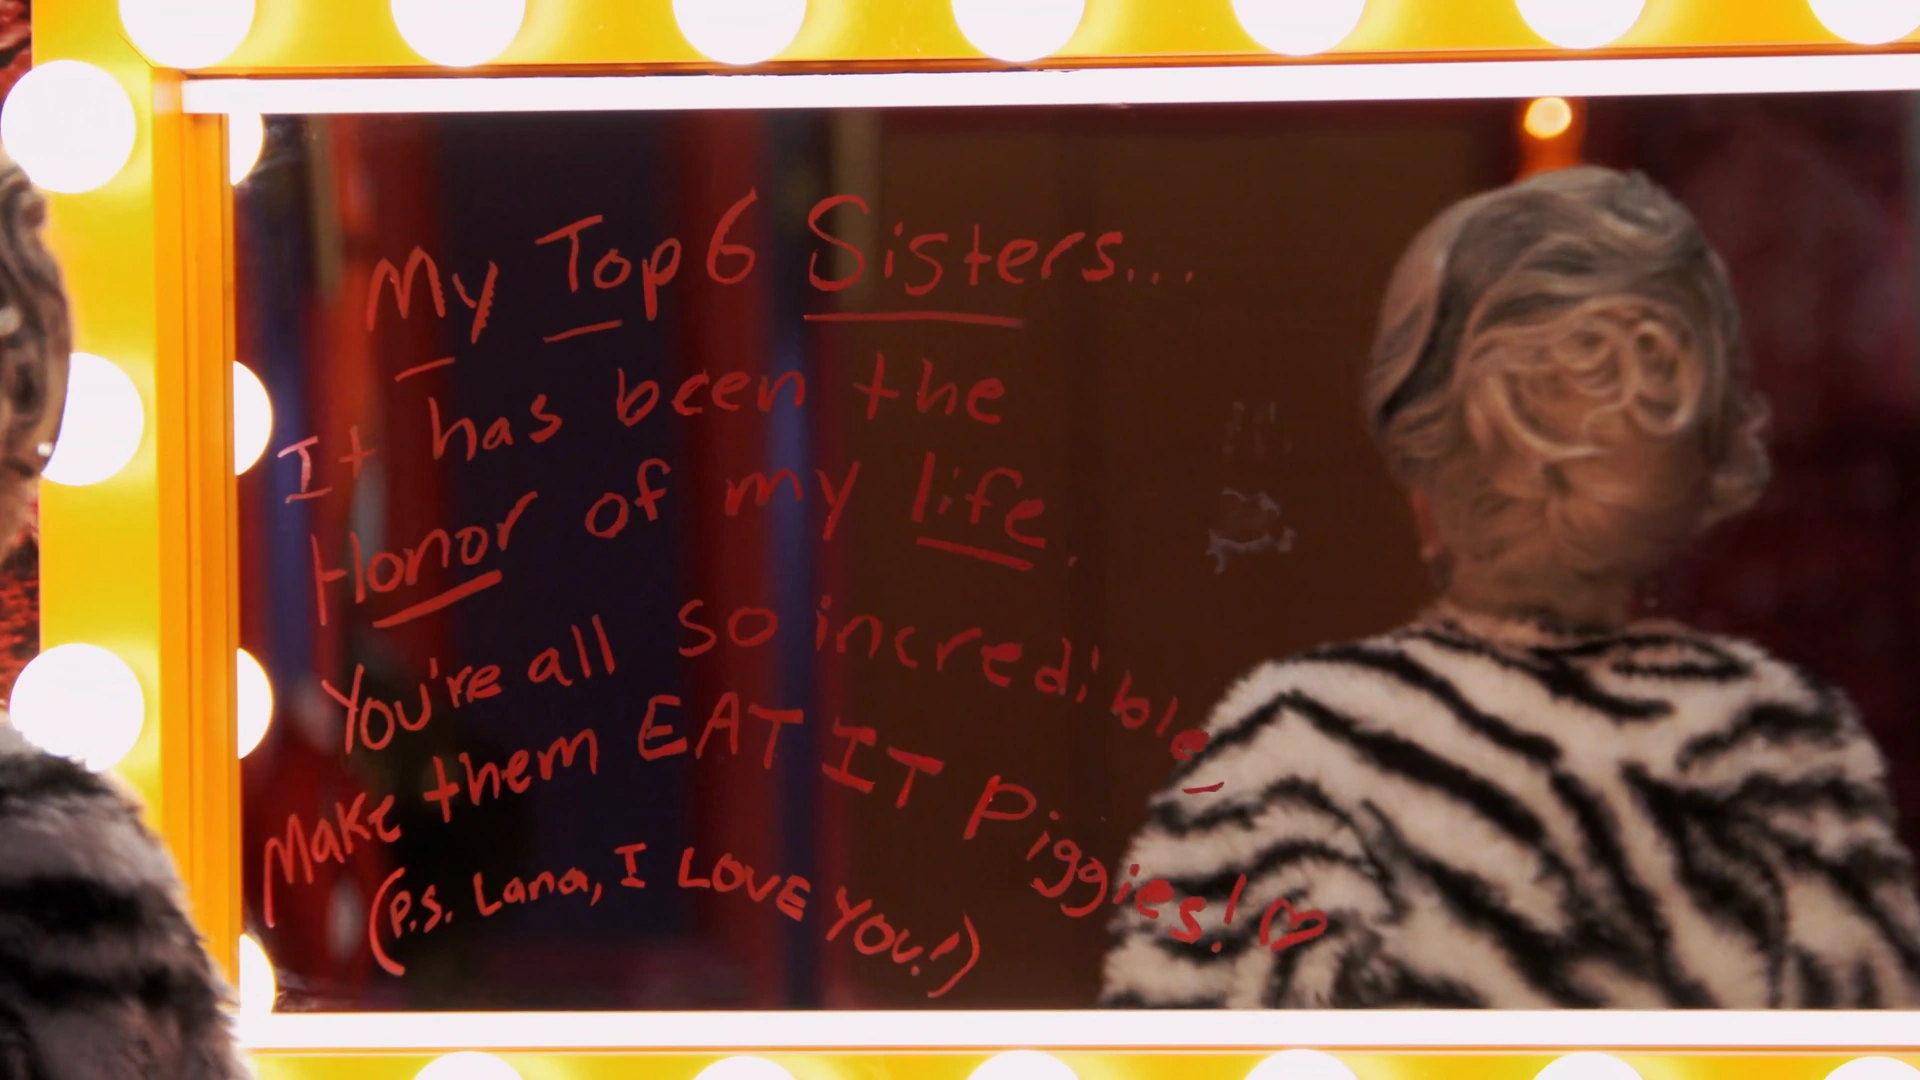 My Top 6 Sisters...
It has been the
Honor of my life.
You're all so incredible_
Make them EAT IT Piggies! ♡
(P.S. Lana, I LOVE YOU!)